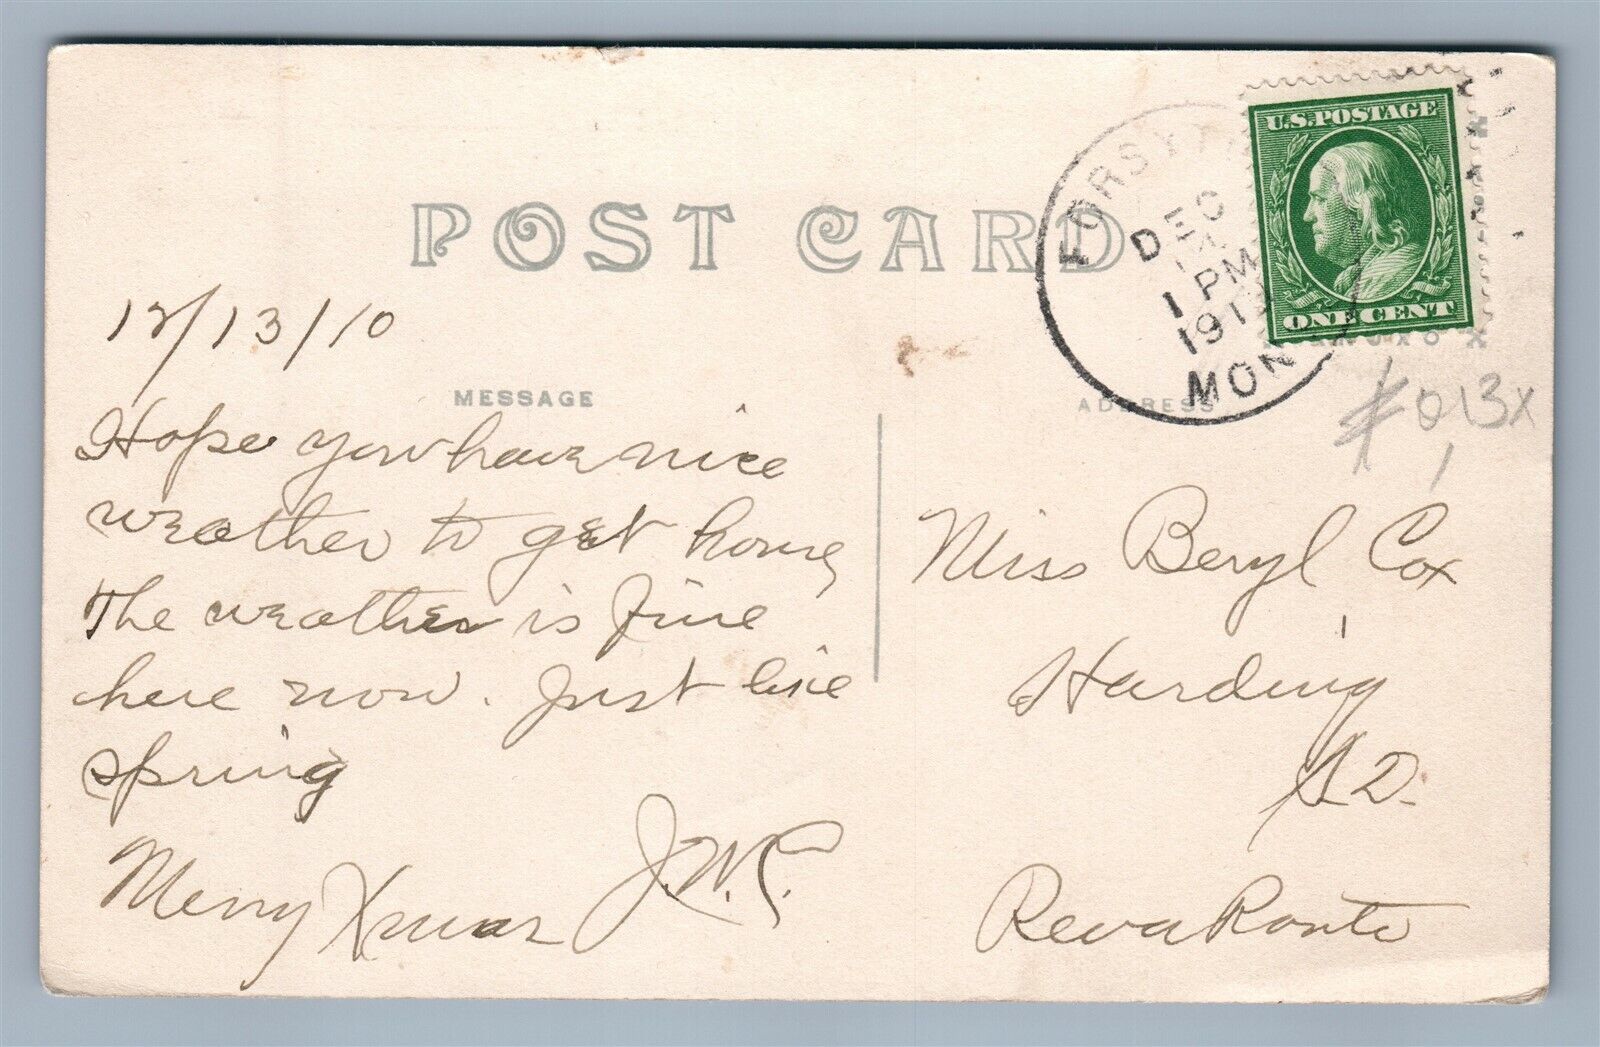 POST CARD
12/13/10
MESSAGE
Hope you have nice
weather to get home,
The weather is fine
here now. Just like
spring
Merry Xmas J.W.C.
FORSYTH
DEC
1 PM
191
MON
U.S. POSTAGE
ONE CENT
ADDRESS
Miss Beryl Cox
Harding
S.D.
Reva Route